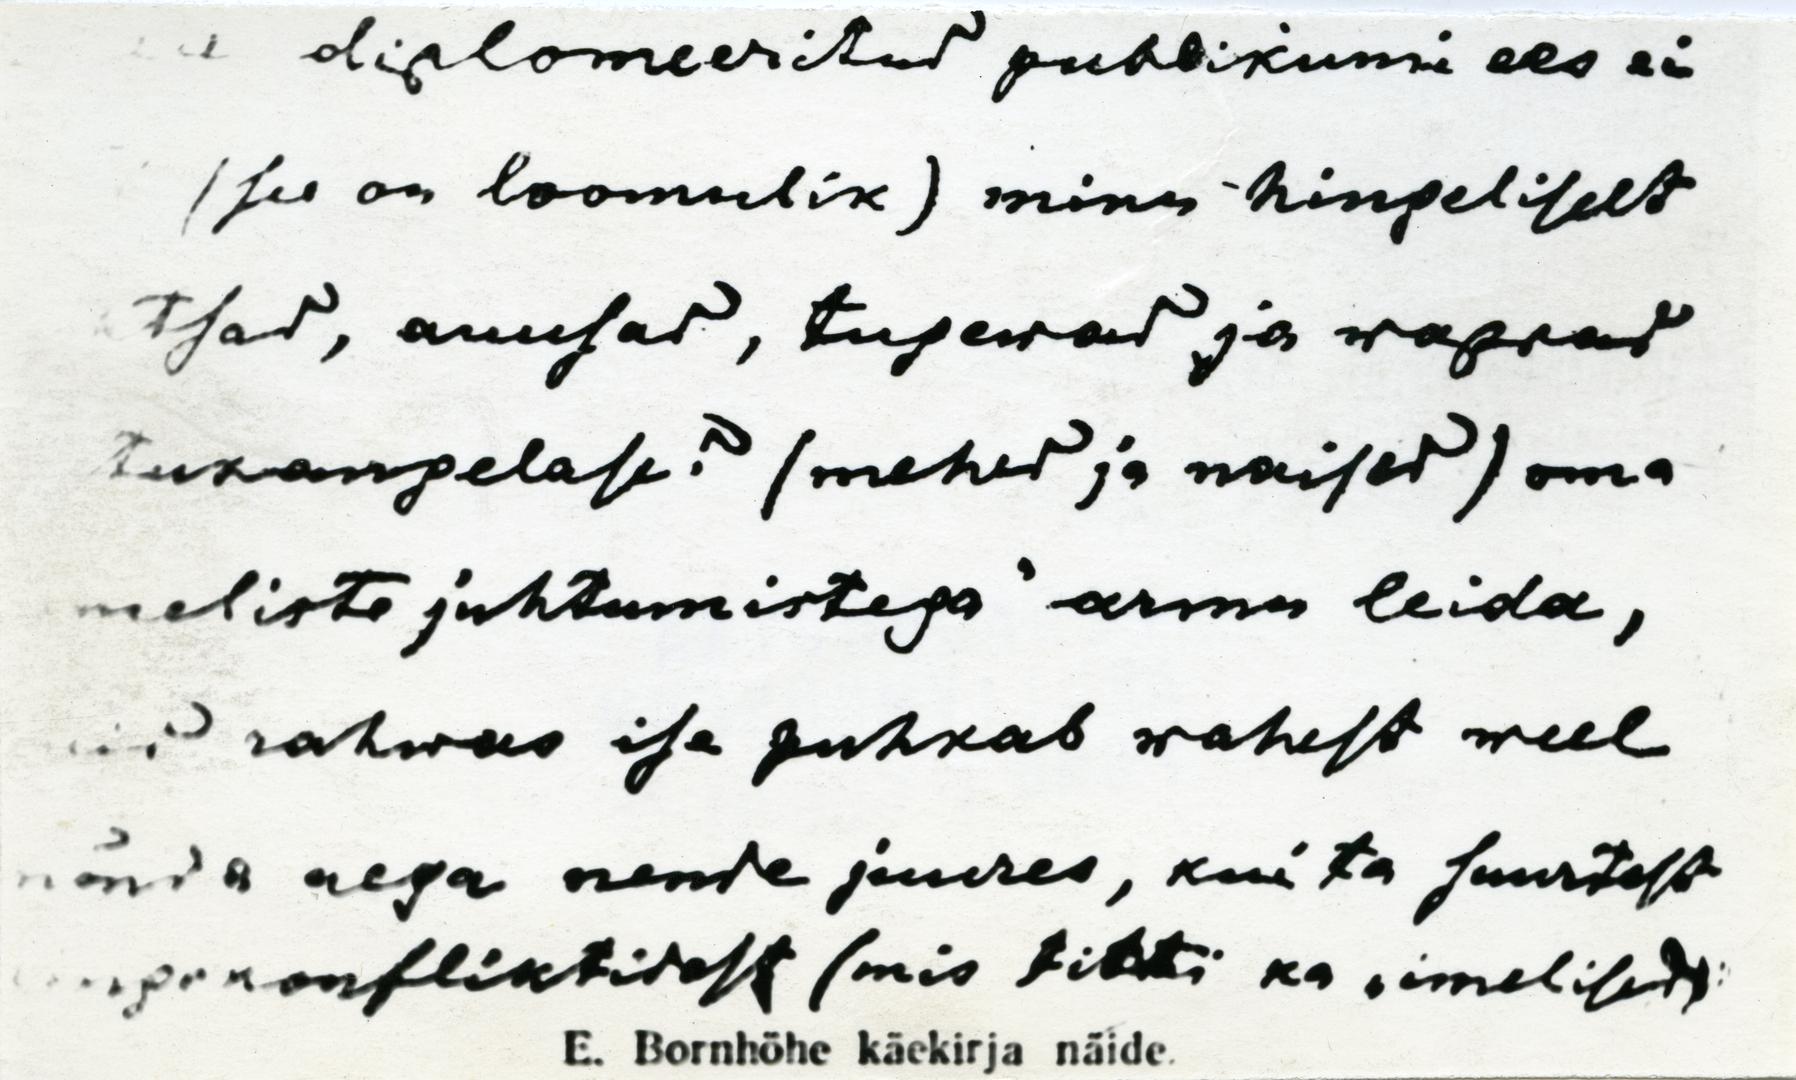 diplomeeritud publikumi ees ei
(see on loomulik) minu hingeliselt
ausad, tugewad ja waprad
tukangelased (mehed ja naised) oma
meliste juhtumistega" armu leida,
rahwas ise puhkab wahest weel
nõnda aega nende juures, kui ta suurtest
ingekonfliktidest (mis tihti ka „imelised"
E. Bornhöhe käekirja näide.